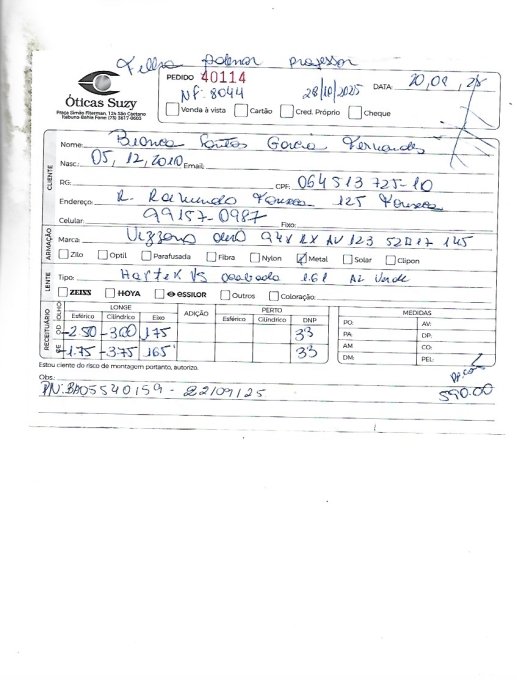 Óticas Suzy
Praça Simão Fiterman, 125 São Caetano
Itabuna-Bahia Fone (73) 3617-0603
PEDIDO 40114
NF: 8044
28/10/2025
DATA:
Venda à vista Cartão Cred. Próprio Cheque
CLIENTE
Nome: Bianca Santos Garcia Fernandes
Nasc.: 05, 12, 2010 Email:
RG: CPF: 064513725-10
Endereço: R. Raimundo Fonseca 125 Fonseca
Celular: 99157-0987 Fixo:
ARMAÇÃO
Marca:
Zilo Optil Parafusada Fibra Nylon Metal Solar Clipon
LENTE
Tipo: 1.61 Az verde
ZEISS HOYA essilor Outros Coloração:
RECEITUÁRIO
OLHO LONGE ADIÇÃO PERTO MEDIDAS
Esférico Cilíndrico Eixo Esférico Cilíndrico DNP
OD -2.50 -3.00 175 33
OE -1.75 -3.75 165 33
PO: AV:
PA: DP:
AM CO:
DM: PEL:
Estou ciente do risco de montagem portanto, autorizo.
Obs:
PN:BA05540159 - 22/09/25
590.00